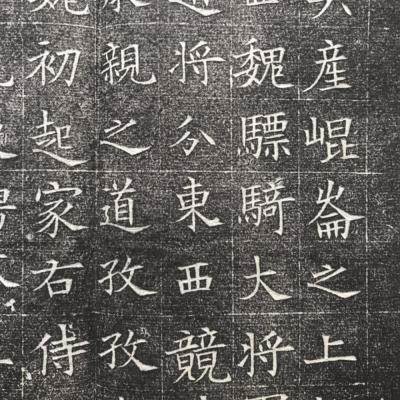 産崐崙之上
魏驃騎大將
將分東西競
親之道孜孜
魏初起家右侍